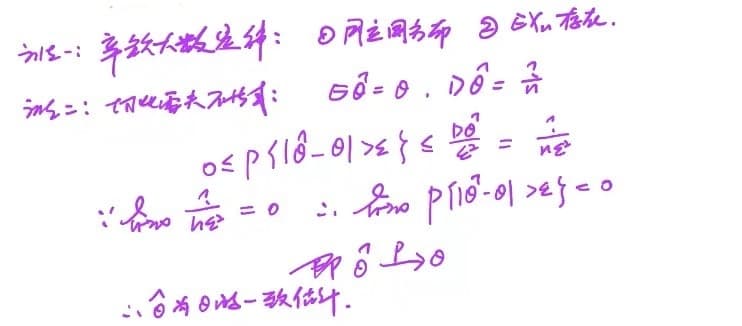 证法一:辛钦大数定律: ① 独立同分布 ② EXn 存在.
证法二:切比雪夫不等式: Eθ̂ = θ , Dθ̂ = 1/n
0 ≤ P{|θ̂ - θ| > ε} ≤ Dθ̂/ε² = 1/(nε²)
∵ lim n→∞ 1/(nε²) = 0 ∴ lim n→∞ P{|θ̂ - θ| > ε} = 0
即 θ̂ P→ θ
∴ θ̂ 为 θ 的一致估计.